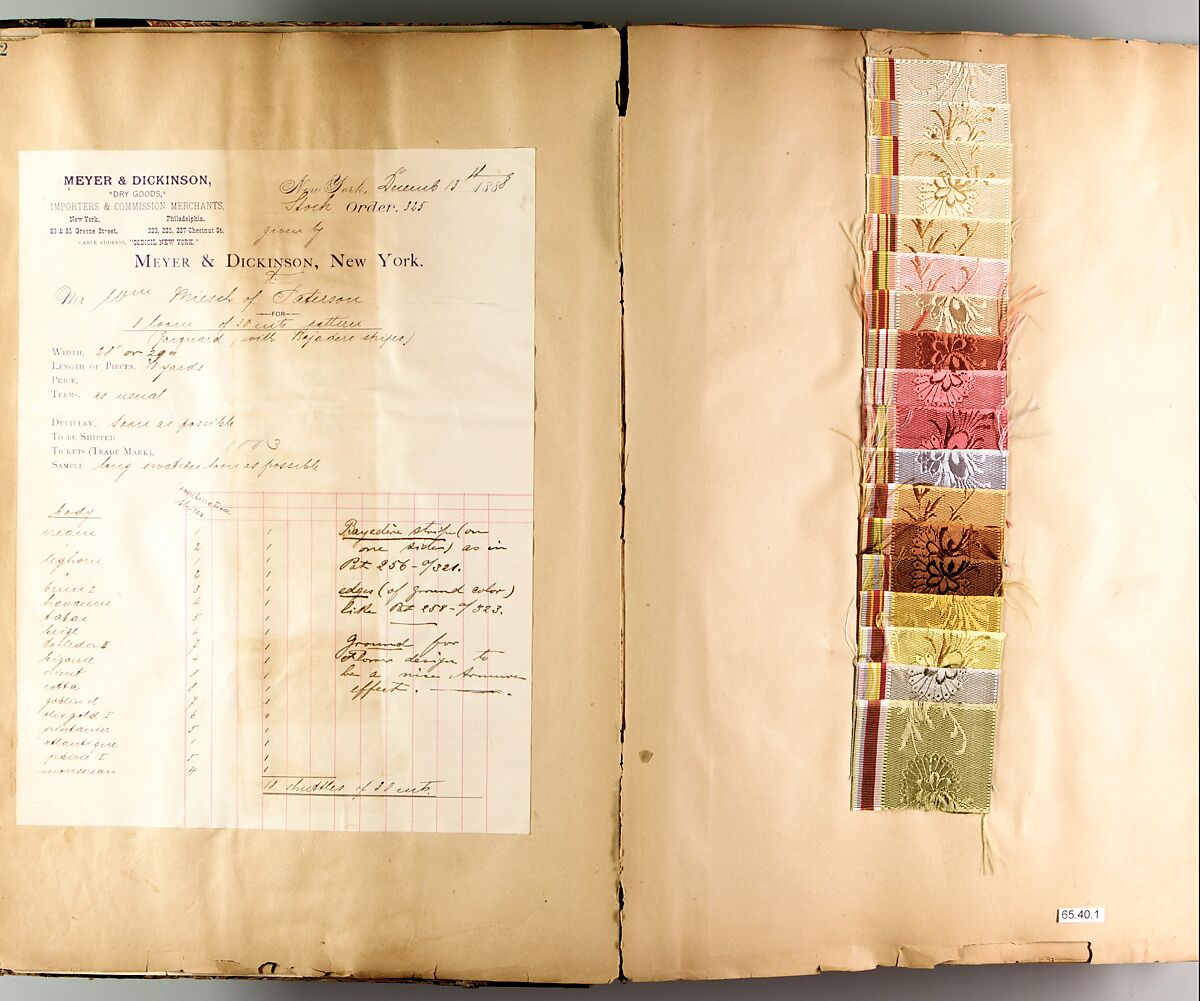 2
MEYER & DICKINSON,
*DRY GOODS,*
IMPORTERS & COMMISSION MERCHANTS,
New York, Philadelphia,
83 & 85 Greene Street, 223, 225, 227 Chestnut St.
CABLE ADDRESS, "CODICIL NEW YORK."
New York, Decemb 13th 1888
Stock Order. 325
given by
MEYER & DICKINSON, New York.
Mr Wm Miesch of Paterson
FOR
1 loom of 30 cuts pattern
(Jacquard, with Bajadere stripes)
WIDTH, 28 or 29
LENGTH OF PIECES, 10 yards
PRICE,
TERMS, as usual
DELIVERY, soon as possible
TO BE SHIPPED
TICKETS (TRADE MARK),
SAMPLE long swatches soon as possible
body
combination stripes
cream 1 1
2 1
leghorn 1 1
2 1
3 1
4 1
tabac 5 1
beige 6 1
7 1
4 1
1 1
8 1
gobelin 7 1
vieil gold I 6 1
5 1
1 1
5 1
4 1
18 shuttles of 30 cuts.
Bayedère stripe (on
one side) as in
Pat 256-o/321.
edges (of ground color)
like Pat 258-o/323.
Ground for
Flower design to
be a nice Armure
effect.
65.40.1